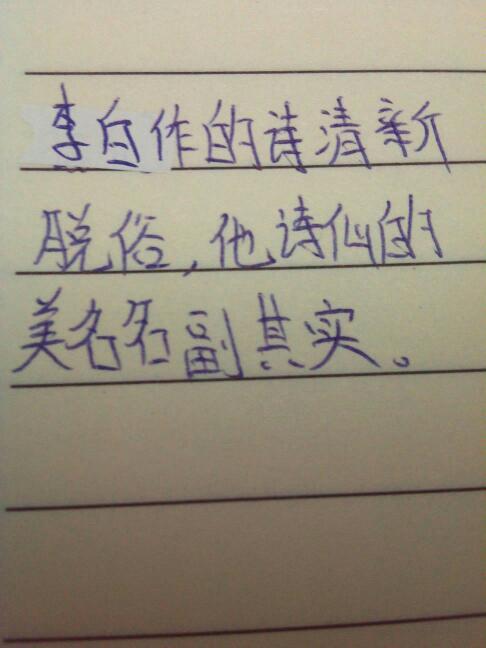 李白作的诗清新
脱俗,他诗仙的
美名名副其实。